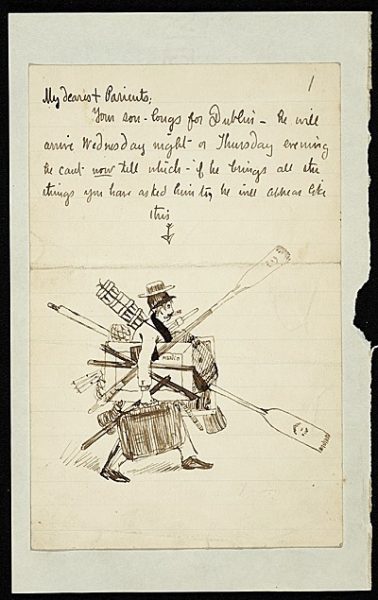 1
My dearest Parients;
Your son - longs for Dublin - he will
arrive Wednesday night or Thursday evening
he cant now tell which - if he brings all the
things you have asked him to, he will appear like
this